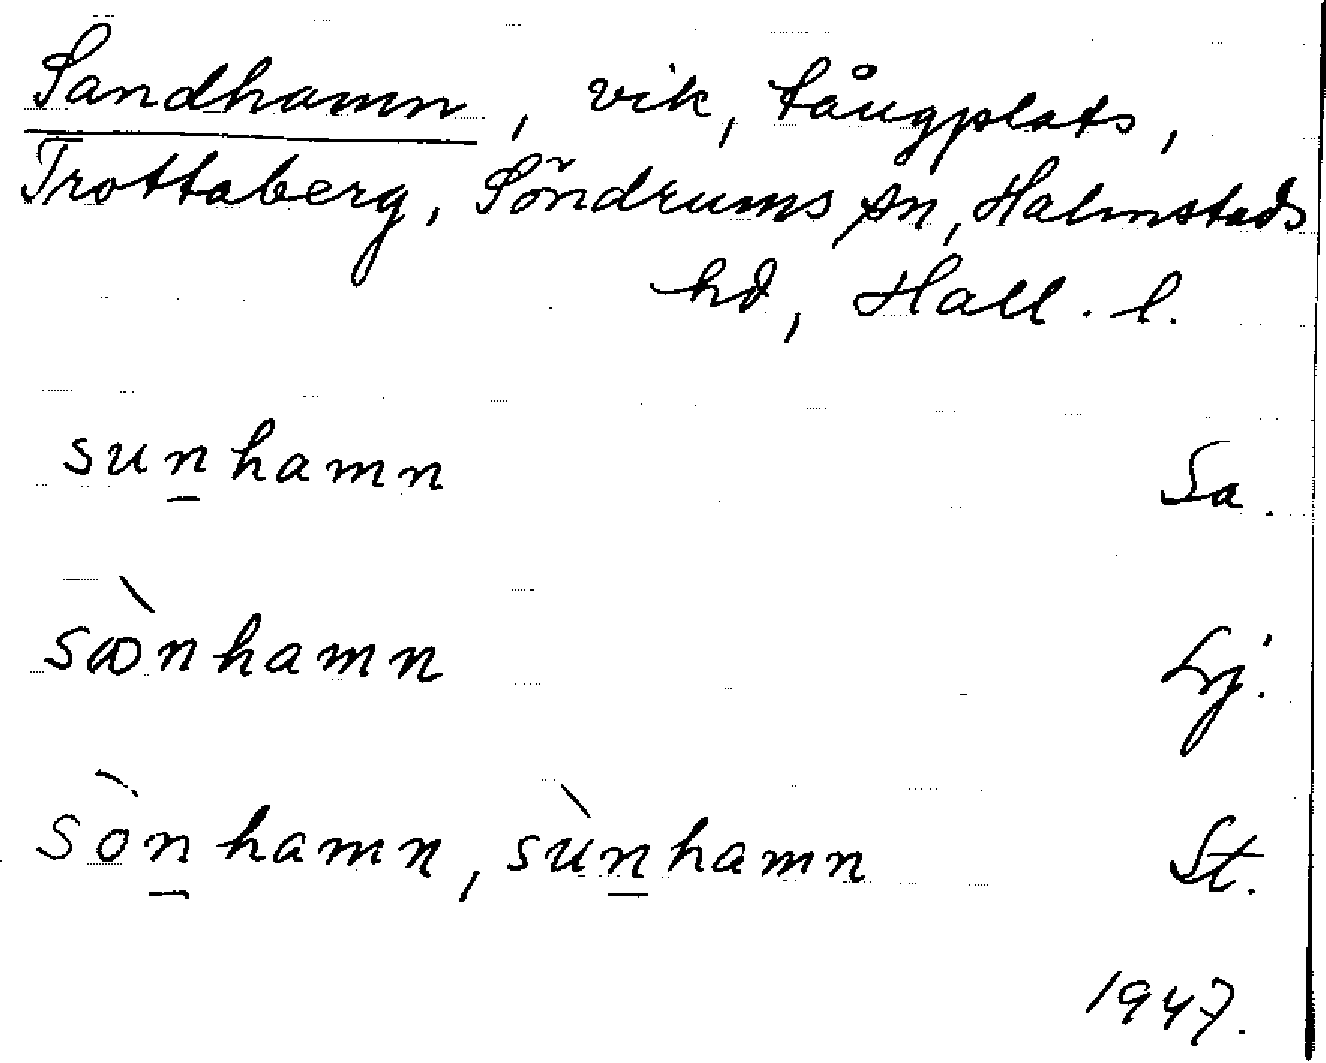 Sandhamn, vik, tångplats,
Trottaberg, Söndrums sn, Halmstads
hd, Hall. l.
sun̲hamn Sa.
sꝏ̀nhamn Lj.
sòn̲hamn, sùn̲hamn St.
1947.